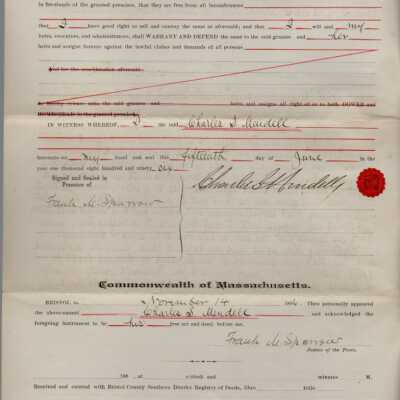 in fee-simple of the granted premises, that they are free from all incumbrances
that I have good right to sell and convey the same as aforesaid; and that I will and my
heirs, executors, and administrators, shall WARRANT AND DEFEND the same to the said grantee and her
heirs and assigns forever against the lawful claims and demands of all persons
And for the consideration aforesaid
hereby release unto the said grantee and heirs and assigns all right of or to both DOWER and
HOMESTEAD in the granted premises.
IN WITNESS WHEREOF, I the said Charles S. Mendell
hereunto set my hand and seal this fifteenth day of June in the
year one thousand eight hundred and ninety six
Signed and Sealed in
Presence of
Charles S. Mendell
Frank M. Sparrow
Commonwealth of Massachusetts.
BRISTOL November 14 Then personally appeared
the above-named Charles S. Mendell and acknowledged the
foregoing instrument to be his free act and deed, before me,
Frank M. Sparrow
Justice of the Peace.
188 , at o'clock and minutes M.
Received and entered with Bristol County Southern District Registry of Deeds, libro folio